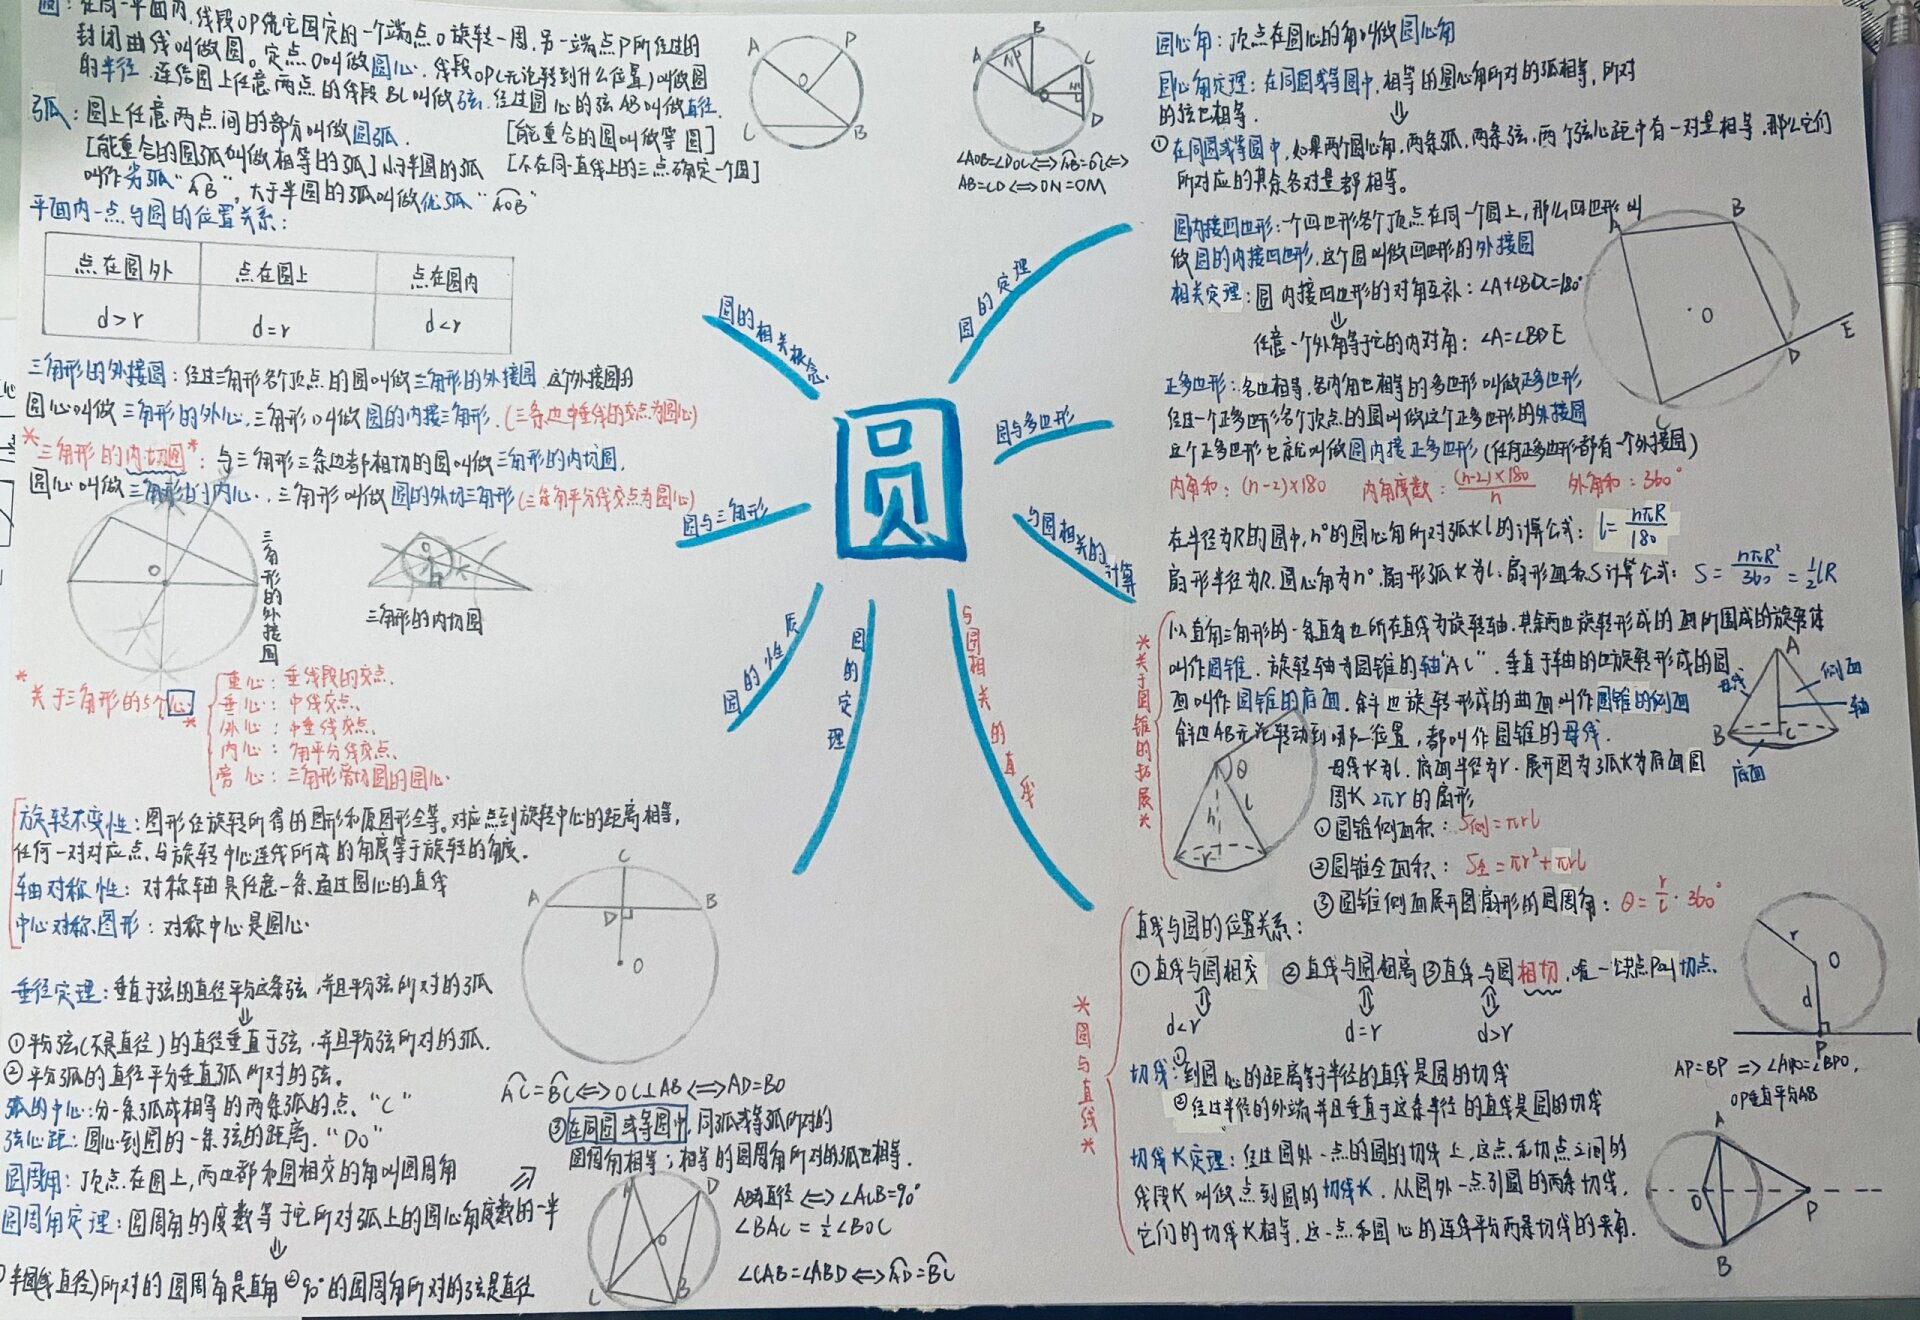 圆：在同一平面内，线段OP绕它固定的一个端点O旋转一周，另一端点P所经过的
封闭曲线叫做圆。定点O叫做圆心，线段OP(无论转到什么位置)叫做圆
的半径，连结圆上任意两点的线段BC叫做弦，经过圆心的弦AB叫做直径．
弧：圆上任意两点间的部分叫做圆弧． [能重合的圆叫做等圆]
[能重合的圆弧叫做相等的弧] 小于半圆的弧 [不在同一直线上的三点确定一个圆]
叫作劣弧"AB"，大于半圆的弧叫做优弧"AOB"
平面内一点与圆的位置关系：
点在圆外 点在圆上 点在圆内
d>r d=r d<r
三角形的外接圆：经过三角形各个顶点的圆叫做三角形的外接圆，这个外接圆的
圆心叫做三角形的外心，三角形叫做圆的内接三角形．(三条边中垂线的交点为圆心)
*三角形的内切圆*：与三角形三条边都相切的圆叫做三角形的内切圆，
圆心叫做三角形的内心，三角形叫做圆的外切三角形(三条角平分线交点为圆心)
三角形的外接圆
三角形的内切圆
*关于三角形的5个心*
重心：垂线段的交点、
垂心：中线交点、
外心：中垂线交点、
内心：角平分线交点、
旁心：三角形旁切圆的圆心．
旋转不变性：图形经旋转所得的图形和原图形全等。对应点到旋转中心的距离相等，
任何一对对应点与旋转中心连线所成的角度等于旋转的角度．
轴对称性：对称轴是任意一条通过圆心的直线
中心对称图形：对称中心是圆心．
垂径定理：垂直于弦的直径平分这条弦，并且平分弦所对的弧
⇓
①平分弦(不是直径)的直径垂直于弦，并且平分弦所对的弧．
②平分弧的直径平分垂直弧所对的弦。
弧的中心：分一条弧成相等的两条弧的点、"C"
弦心距：圆心到圆的一条弦的距离．"DO"
圆周角：顶点在圆上，两边都和圆相交的角叫圆周角
圆周角定理：圆周角的度数等于它所对弧上的圆心角度数的一半
⇓
①半圆(或直径)所对的圆周角是直角 ②90°的圆周角所对的弦是直径
A P O C B
A B C D O
AC=BC⇔OC⊥AB⇔AD=BD
③在同圆或等圆中，同弧或等弧所对的
圆周角相等；相等的圆周角所对的弧也相等．
AB为直径⇔∠ACB=90°
∠BAC=½∠BOC
∠CAB=∠ABD⇔AD=BC
圆
圆的相关概念
圆与三角形
圆的性质
圆的定理
圆的定理
圆与多边形
与圆相关的计算
与圆相关的直线
A B C D O N M
∠AOB=∠DOC⇔AB=DC⇔
AB=CD⇔ON=OM
圆心角：顶点在圆心的角叫做圆心角
圆心角定理：在同圆或等圆中，相等的圆心角所对的弧相等，所对
的弦也相等．
⇓
①在同圆或等圆中，如果两个圆心角，两条弧，两条弦，两个弦心距中有一对量相等，那么它们
所对应的其余各对量都相等。
圆内接四边形：一个四边形各个顶点在同一个圆上，那么四边形叫
做圆的内接四边形，这个圆叫做四边形的外接圆
相关定理：圆内接四边形的对角互补：∠A+∠BDC=180°
⇓
任意一个外角等于它的内对角：∠A=∠BDE
A B O D E C
正多边形：各边相等，各内角也相等的多边形叫做正多边形
经过一个正多边形各个顶点的圆叫做这个正多边形的外接圆
这个正多边形也就叫做圆内接正多边形(任何正多边形都有一个外接圆)
内角和：(n-2)×180 内角度数：(n-2)×180/n 外角和：360°
在半径为R的圆中，n°的圆心角所对弧长l的计算公式：l=nπR/180
扇形半径为R，圆心角为n°，扇形弧长为l，扇形面积S计算公式：S=nπR²/360=½lR
*关于圆锥的拓展*
以直角三角形的一条直角边所在直线为旋转轴，其余两边旋转形成的面所围成的旋转体
叫作圆锥．旋转轴为圆锥的轴"AC"．垂直于轴的边旋转形成的圆
面叫作圆锥的底面．斜边旋转形成的曲面叫作圆锥的侧面
斜边AB无论转动到哪一位置，都叫作圆锥的母线．
母线长为l，底面半径为r．展开图为弧长为底面圆
周长2πr的扇形
①圆锥侧面积：S侧=πrl
②圆锥全面积：S全=πr²+πrl
③圆锥侧面展开图扇形的圆周角：θ=r/l·360°
A 侧面 母线 轴 B C 底面
θ l h r
*圆与直线*
直线与圆的位置关系：
①直线与圆相交 ②直线与圆相离 ③直线与圆相切，唯一公共点P叫切点．
d<r d=r d>r
切线：①到圆心的距离等于半径的直线是圆的切线
②经过半径的外端并且垂直于这条半径的直线是圆的切线
切线长定理：经过圆外一点的圆的切线上，这点和切点之间的
线段长叫做点到圆的切线长．从圆外一点引圆的两条切线，
它们的切线长相等，这一点和圆心的连线平分两条切线的夹角．
r O d P
AP=BP⇒∠APO=∠BPO，
OP垂直平分AB
A O P B